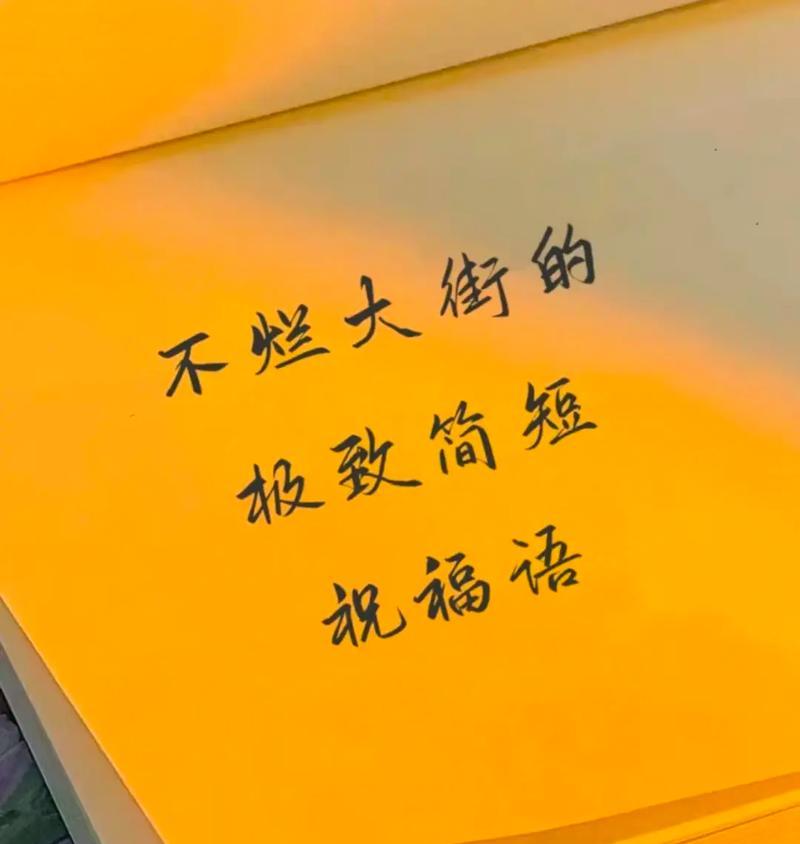 不烂大街的
极致简短
祝福语